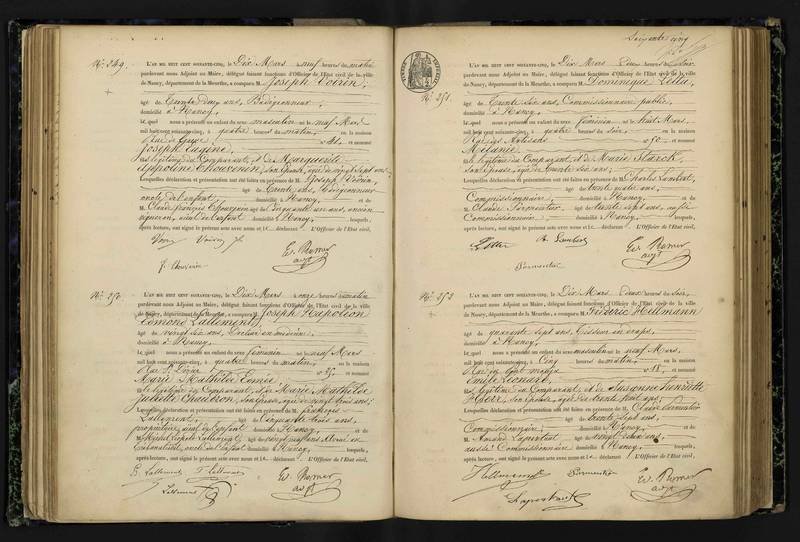 N°. 249.
L'AN MIL HUIT CENT SOIXANTE-CINQ, le Dix Mars à neuf heures du matin
pardevant nous Adjoint au Maire, délégué faisant fonctions d'Officier de l'Etat civil de la ville
de Nancy, département de la Meurthe, a comparu M. Joseph Voirin,
âgé de trente deux ans, Badigeonneur,
domicilié à Nancy,
lequel nous a présenté un enfant du sexe masculin né le neuf Mars
mil huit cent soixante-cinq, à quatre heures du matin, en la maison
Rue de Grève n° 41, et nommé
Joseph Eugène,
fils légitime du Comparant, et de Marguerite
Appoline Thouvenin, son épouse, âgée de vingt sept ans.
Lesquelles déclaration et présentation ont été faites en présence de M. Joseph Voirin,
âgé de trente ans, Badigeonneur
oncle de l'enfant, domicilié à Nancy, et de
M. Claude François Thouvenin âgé de cinquante un ans, ancien
vigneron, aïeul de l'enfant domicilié à Nancy, lesquels,
après lecture, ont signé le présent acte avec nous et le déclarant L'Officier de l'Etat civil,
Voirin J.
Ev. Remer
adjt
N°. 250.
L'AN MIL HUIT CENT SOIXANTE-CINQ, le Dix Mars à onze heures du matin
pardevant nous Adjoint au Maire, délégué faisant fonctions d'Officier de l'Etat civil de la ville
de Nancy, département de la Meurthe, a comparu M. Joseph Napoléon
Edmond Lallement,
âgé de vingt six ans, Docteur en médecine,
domicilié à Nancy,
lequel nous a présenté un enfant du sexe féminin né le neuf Mars
mil huit cent soixante-cinq, à quatre heures du matin, en la maison
Rue St. Dizier n° 35, et nommé
Marie Mathilde
fille légitime du Comparant, et de Marie Mathilde
Juliette Chaudron, son épouse, âgée de vingt trois ans;
Lesquelles déclaration et présentation ont été faites en présence de M. François
Lallement, âgé de cinquante trois ans,
propriétaire, aïeul de l'enfant domicilié à Nancy, et de
M. Lallement, âgé de
oncle de l'enfant domicilié à Nancy, lesquels,
après lecture, ont signé le présent acte avec nous et le déclarant L'Officier de l'Etat civil,
E. Lallement F. Lallement
Lallement
Ev. Remer
adjt
Soixante cinq
N°. 251.
L'AN MIL HUIT CENT SOIXANTE-CINQ, le Dix Mars à Deux heures du soir
pardevant nous Adjoint au Maire, délégué faisant fonctions d'Officier de l'Etat civil de la ville
de Nancy, département de la Meurthe, a comparu M. Dominique
âgé de trente six ans, Commissionnaire public,
domicilié à Nancy,
lequel nous a présenté un enfant du sexe féminin né le huit Mars,
mil huit cent soixante-cinq, à quatre heures du soir, en la maison
Rue des n° 50 et nommé
Mélanie
fille légitime du Comparant, et de Marie Starck,
son épouse, âgée de trente six ans;
Lesquelles déclaration et présentation ont été faites en présence de M. Charles Lambert,
âgé de trente quatre ans,
Commissionnaire, domicilié à Nancy, et de
M. Claude Parmentier âgé de trente sept ans, aussi
Commissionnaire domicilié à Nancy, lesquels,
après lecture, ont signé le présent acte avec nous et le déclarant L'Officier de l'Etat civil,
Lambert
Parmentier
Ev. Remer
adjt
N°. 252
L'AN MIL HUIT CENT SOIXANTE-CINQ, le Dix Mars à deux heures du soir,
pardevant nous Adjoint au Maire, délégué faisant fonctions d'Officier de l'Etat civil de la ville
de Nancy, département de la Meurthe, a comparu M. Fréderic Hellmann
âgé de quarante sept ans, Tisseur en draps,
domicilié à Nancy,
lequel nous a présenté un enfant du sexe masculin né le neuf Mars,
mil huit cent soixante-cinq, à Cinq heures du matin, en la maison
n° 18, et nommé
Emile Léonard,
fils légitime du Comparant, et de Suzanne Henriette
son épouse, âgée de trente huit ans;
Lesquelles déclaration et présentation ont été faites en présence de M. Claude Parmentier
âgé de trente sept ans,
Commissionnaire, domicilié à Nancy, et de
M. Amand Lapertaut âgé de vingt deux ans,
aussi Commissionnaire domicilié à Nancy, lesquels,
après lecture, ont signé le présent acte avec nous et le déclarant L'Officier de l'Etat civil,
Parmentier
Ev. Remer
adjt